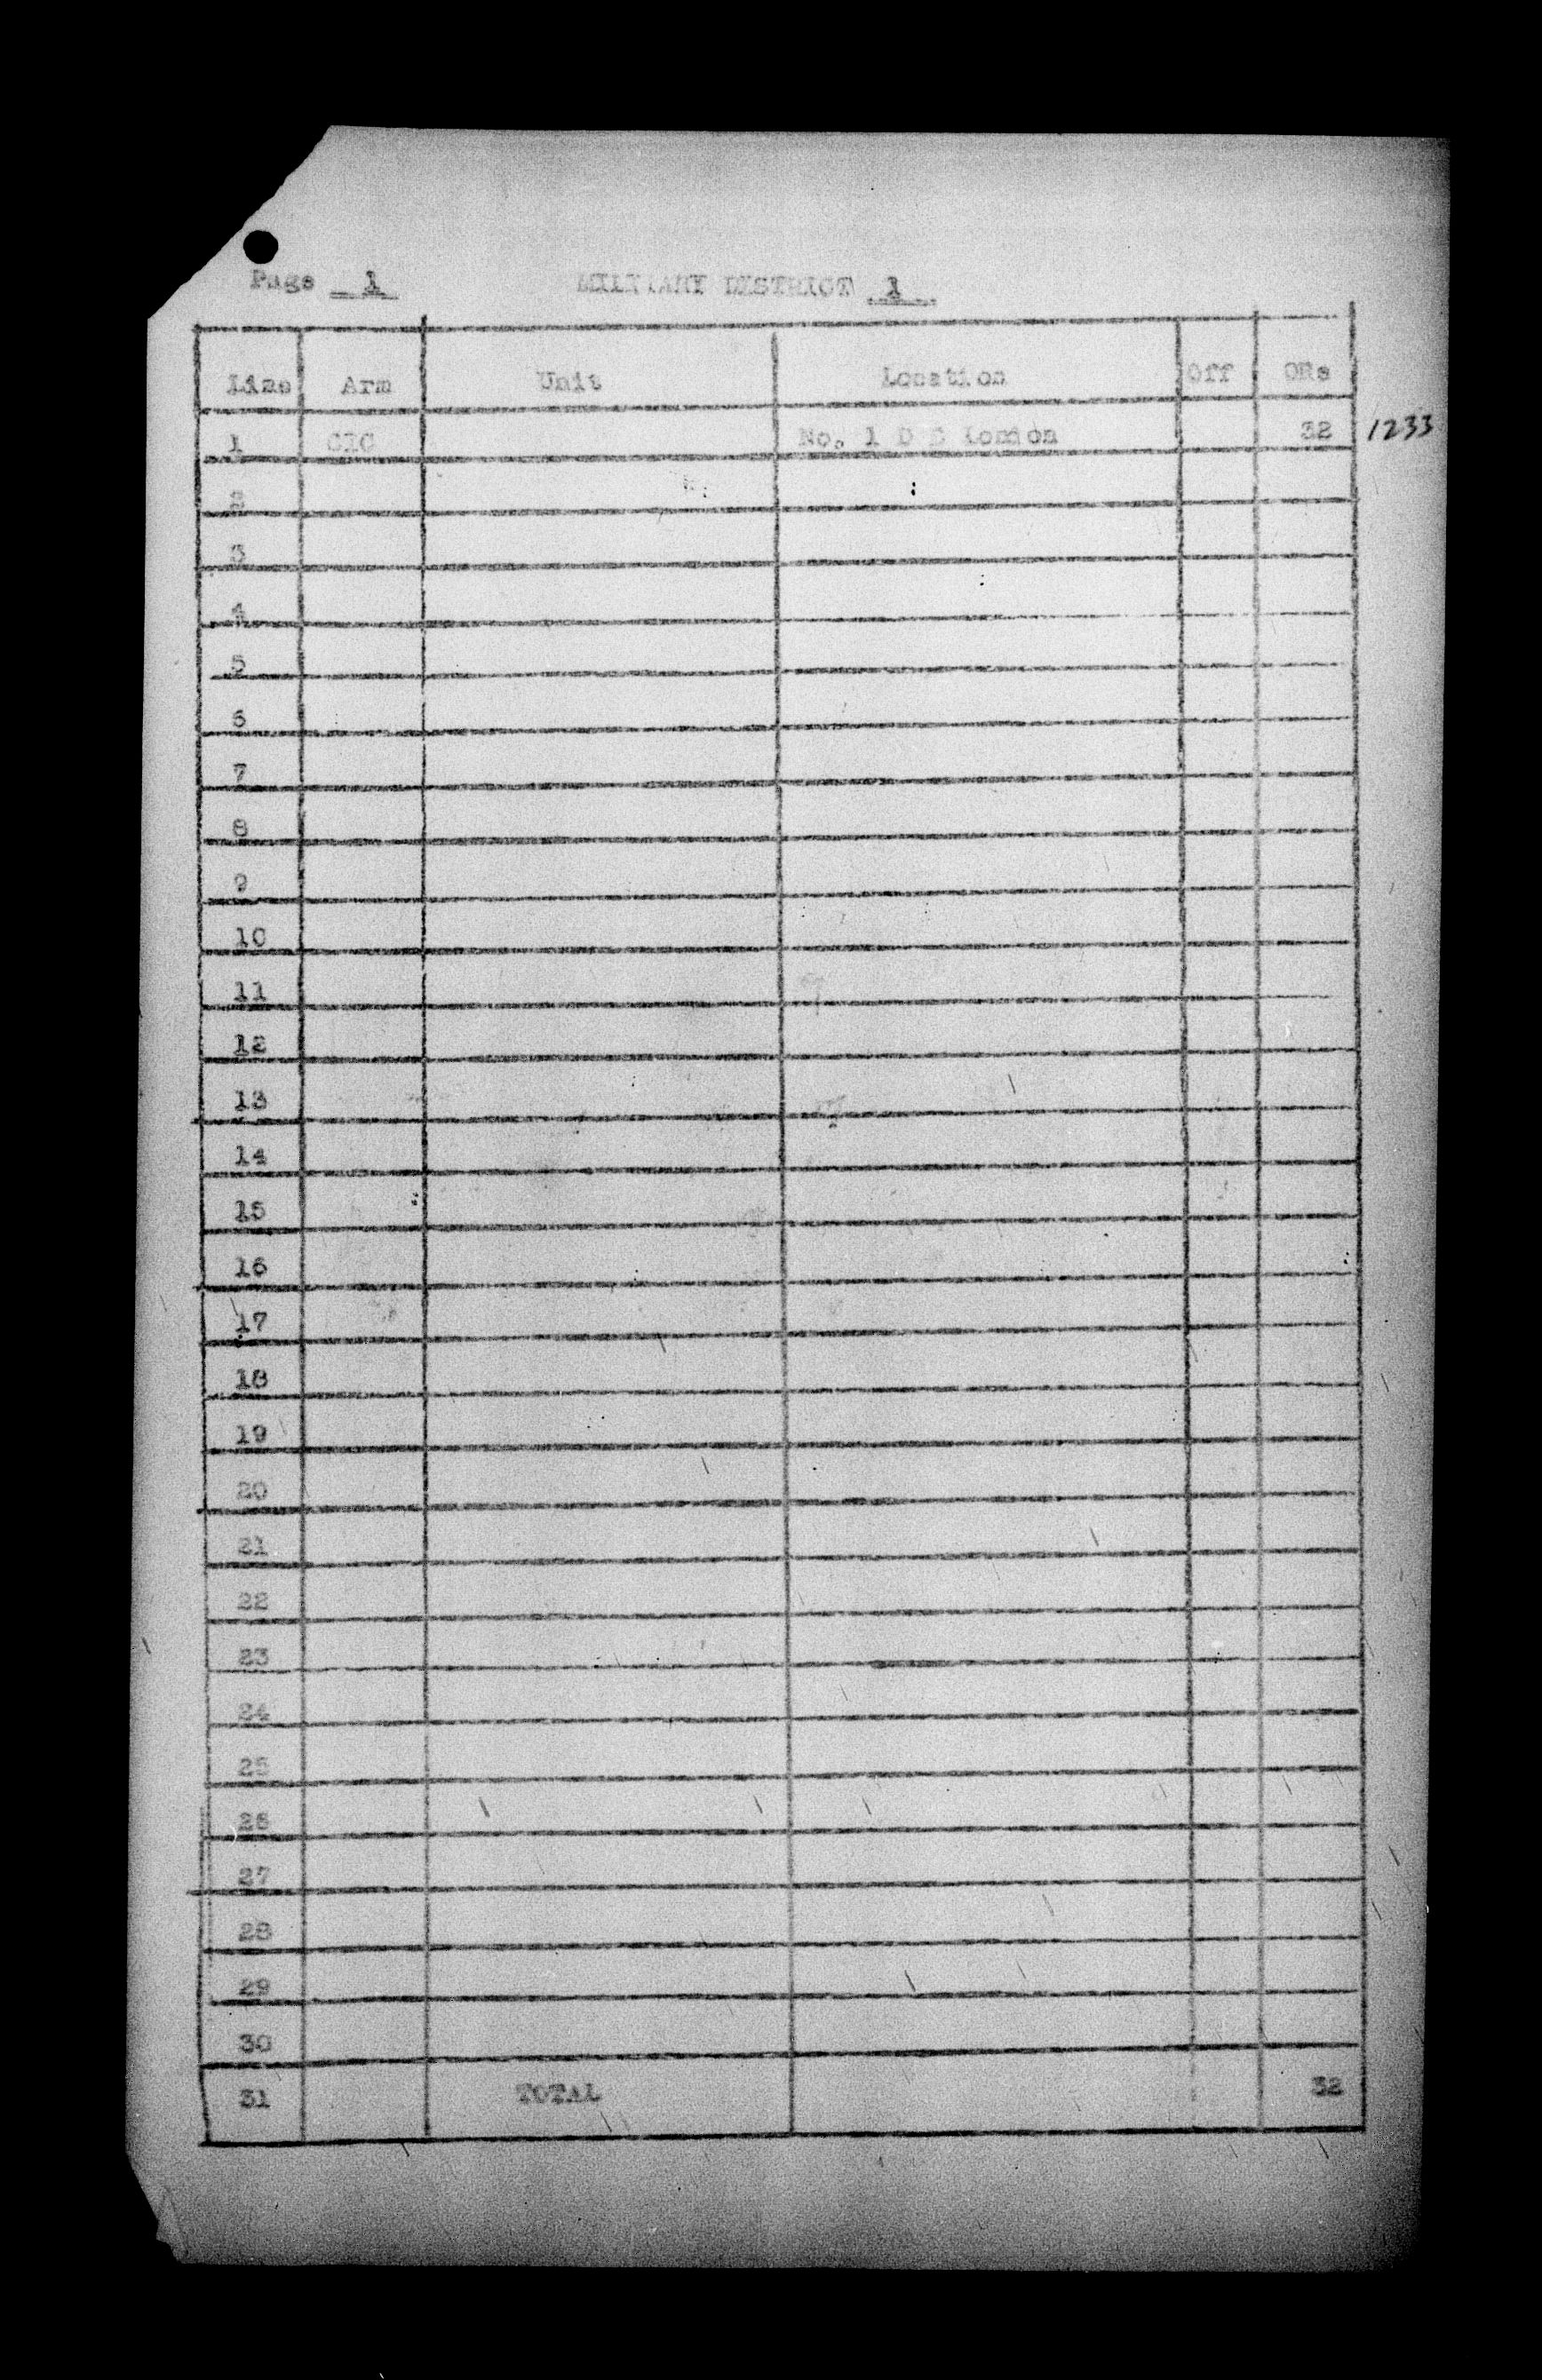 Page 1 MILITARY DISTRICT 1
Line Arm Unit Location Off ORs
1 CIC No. 1 D D London 32 1233
2
3
4
5
6
7
8
9
10
11
12
13
14
15
16
17
18
19
20
21
22
23
24
25
26
27
28
29
30
31 TOTAL 32